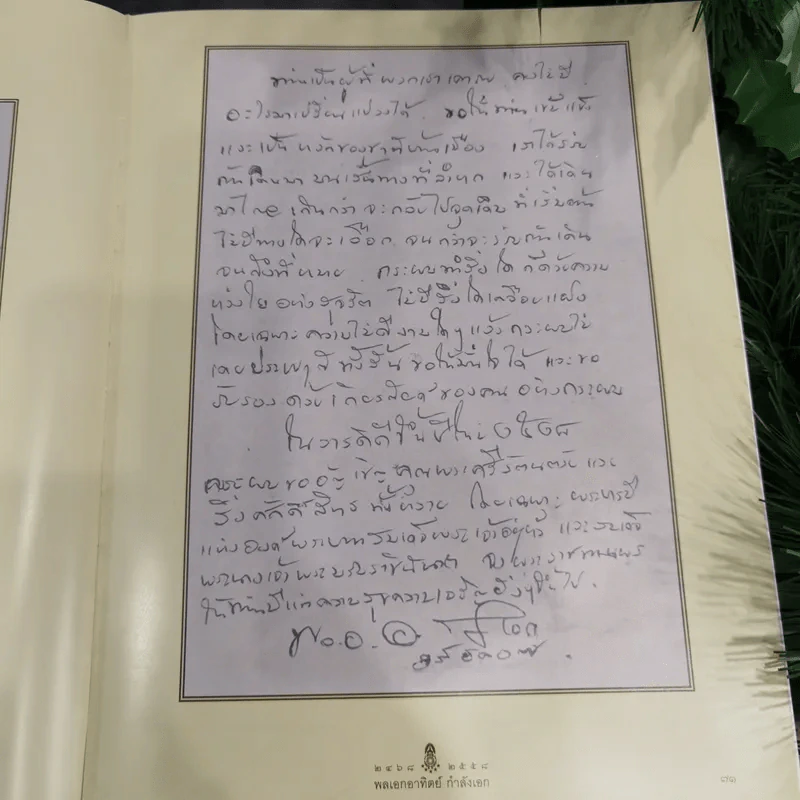 ท่านเป็นผู้ที่พวกเราเคารพ คงไม่มี
อะไรมาเปลี่ยนแปลงได้ ขอให้ท่านเข้มแข็ง
และเป็นหลักของชาติบ้านเมือง เราได้ร่วม
กันเดินมาบนเส้นทางที่ลำบาก และได้เดิน
มาไกลเกินกว่าจะกลับไปจุดเดิมที่เริ่มต้น
ไม่มีทางใดจะเลือก จนกว่าจะร่วมกันเดิน
จนถึงที่หมาย กระผมทำสิ่งใดก็ด้วยความ
ห่วงใยอย่างสุจริต ไม่มีสิ่งใดเคลือบแฝง
โดยเฉพาะความไม่ดีงามใดๆ แล้วกระผมไม่
เคยประพฤติทั้งสิ้น ขอให้มั่นใจได้ และขอ
รับรองด้วยเกียรติยศของคนอย่างกระผม
ในวารดิถีขึ้นปีใหม่ ๒๕๒๘
กระผมขออัญเชิญคุณพระศรีรัตนตรัย และ
สิ่งศักดิ์สิทธิ์ทั้งหลาย โดยเฉพาะพระบารมี
แห่งองค์พระบาทสมเด็จพระเจ้าอยู่หัว และสมเด็จ
พระนางเจ้าพระบรมราชินีนาถ จงพระราชทานพร
ให้ท่านมีแต่ความสุขความเจริญยิ่งๆขึ้นไป.
พล.อ.อ.
๒๔๖๘ ๒๕๕๘
พลเอกอาทิตย์ กำลังเอก